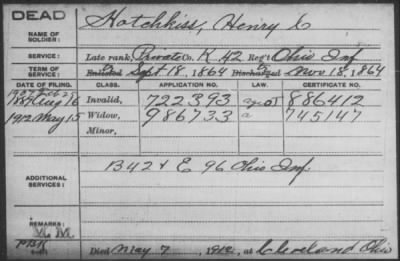 DEAD
NAME OF SOLDIER:
Hotchkiss, Henry C
SERVICE:
Late rank, Private Co. K 42 Reg't Ohio Inf
TERM OF SERVICE:
Enlisted Sept 18, 1864 Discharged Nov 18, 1864
DATE OF FILING. CLASS. APPLICATION NO. LAW. CERTIFICATE NO.
1887 Aug 16 Invalid, 722393 886412
1912 May 15 Widow, 986733 a 745147
Minor,
ADDITIONAL SERVICES:
B 42 & E 96 Ohio Inf.
REMARKS:
Died May 7, 1912, at Cleveland Ohio